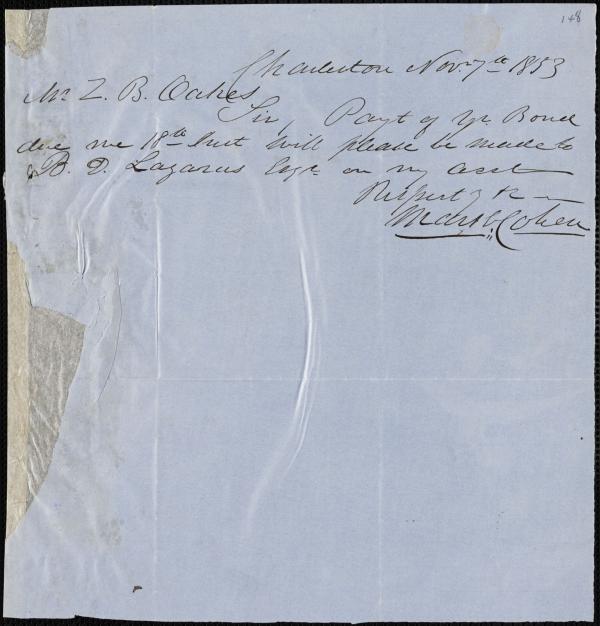 148
Charleston Nov. 7th 1853
Mr Z. B. Oakes
Sir, Payt of yr Bond
due me 18th Inst will please be made to
B. D. Lazarus Esqr on my acct
Respecty &c
Cohen